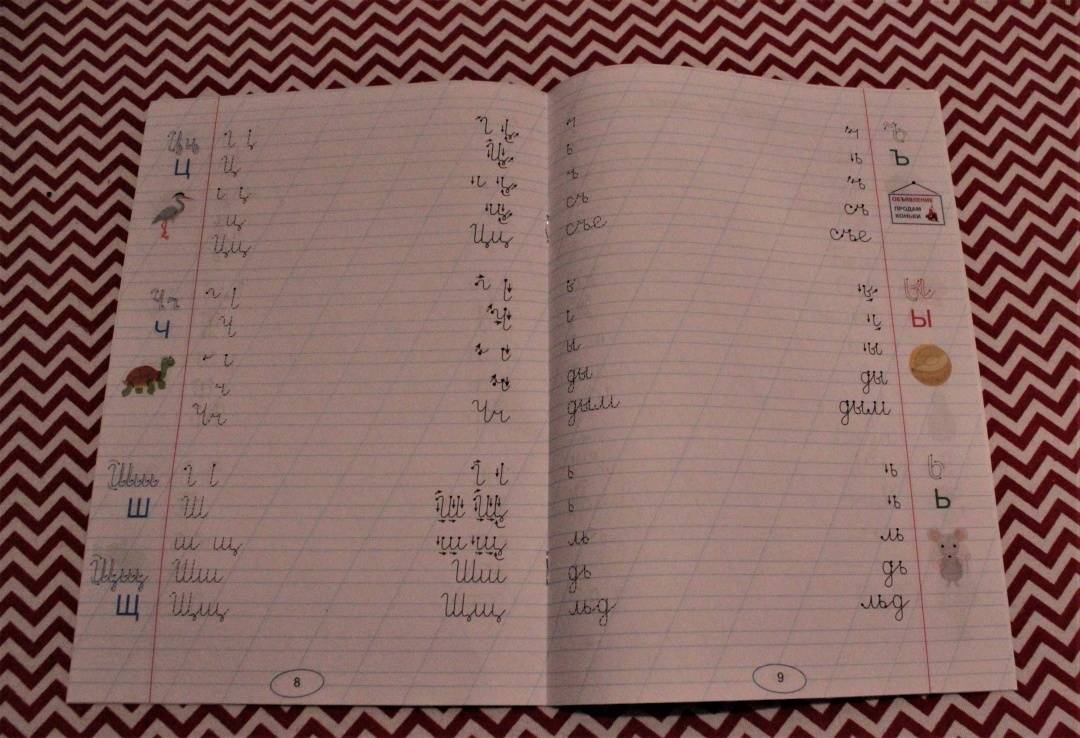 Цц
Ц
Ц
Ц
ц
ц
Цц Цц
Чч
Ч
Ч
Ч
ч
ч
Чч Чч
Ш
Ш
Ш Щ
ш щ ш щ
Шш Шш
Щ
Щщ Щщ
8
ъ ъ
Ъ
ОБЪЯВЛЕНИЕ
ПРОДАМ
КОНЬКИ
съ съ
съе съе
ы
Ы
ы ы
ды ды
дым дым
ь ь
ь
ь ь
Ь
ль ль
дь дь
льд льд
9